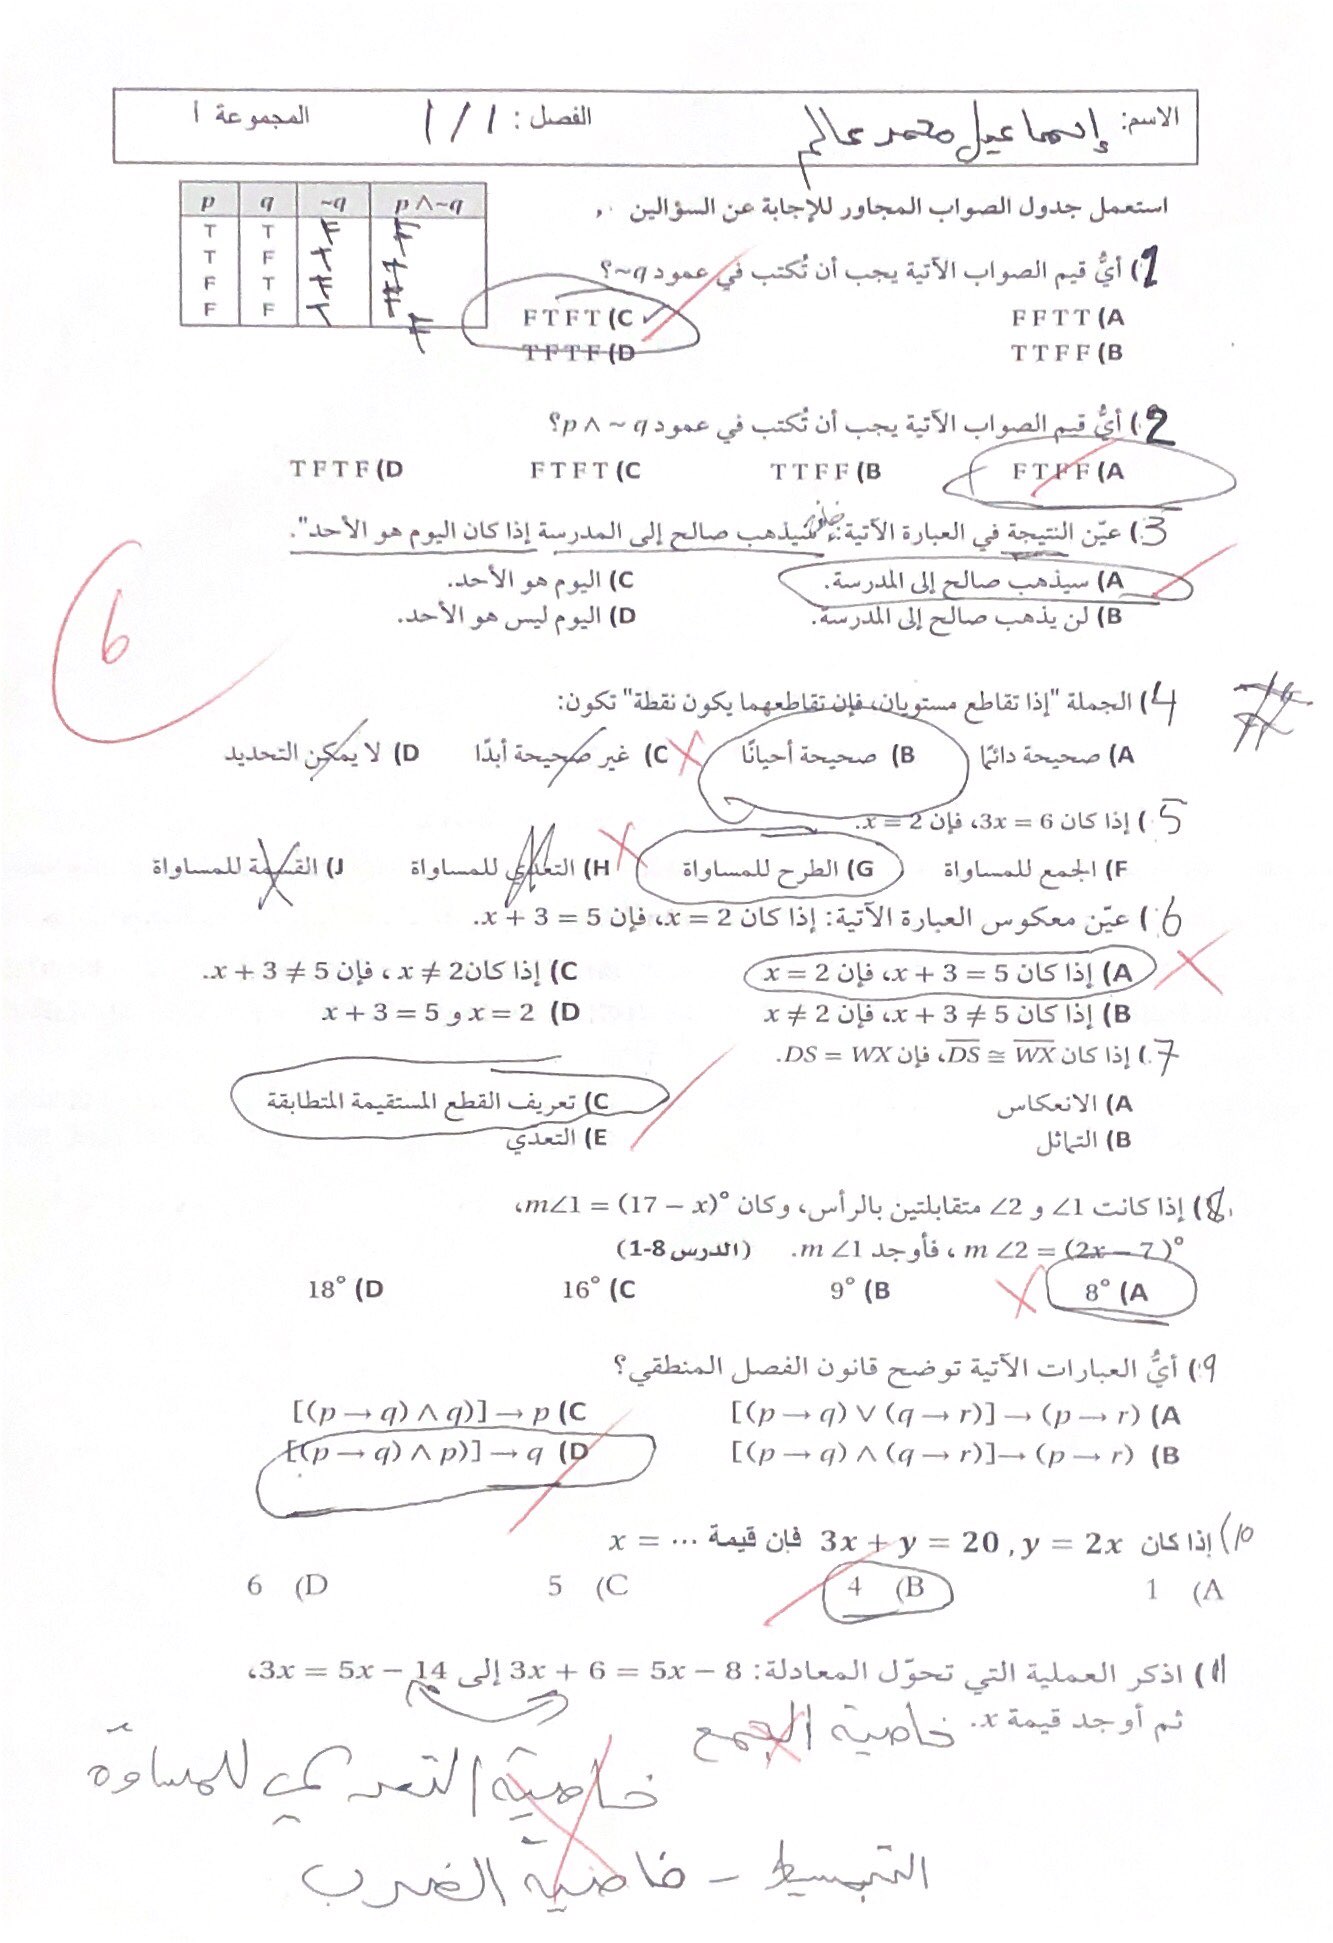 الاسم: إسماعيل محمد عالم الفصل: 1/1 المجموعة ١
استعمل جدول الصواب المجاور للإجابة عن السؤالين
p q ~q p ∧ ~q
T T F F
T F T T
F T F F
F F T F
1) أيُّ قيم الصواب الآتية يجب أن تُكتب في عمود q~؟
A) F F T T C) F T F T
B) T T F F D) T F T F
2) أيُّ قيم الصواب الآتية يجب أن تُكتب في عمود p ∧ ~ q؟
A) F T F F B) T T F F C) F T F T D) T F T F
3) عيّن النتيجة في العبارة الآتية: "سيذهب صالح إلى المدرسة إذا كان اليوم هو الأحد".
A) سيذهب صالح إلى المدرسة. C) اليوم هو الأحد.
B) لن يذهب صالح إلى المدرسة. D) اليوم ليس هو الأحد.
6
4) الجملة "إذا تقاطع مستويان، فإن تقاطعهما يكون نقطة" تكون:
A) صحيحة دائمًا B) صحيحة أحيانًا C) غير صحيحة أبدًا D) لا يمكن التحديد
5) إذا كان 3x = 6، فإن x = 2.
F) الجمع للمساواة G) الطرح للمساواة H) التعدي للمساواة J) القسمة للمساواة
6) عيّن معكوس العبارة الآتية: إذا كان x = 2، فإن x + 3 = 5.
A) إذا كان x + 3 = 5، فإن x = 2 C) إذا كان x ≠ 2 ، فإن x + 3 ≠ 5.
B) إذا كان x + 3 ≠ 5، فإن x ≠ 2 D) x = 2 و x + 3 = 5
7) إذا كان DS ≅ WX، فإن DS = WX.
A) الانعكاس C) تعريف القطع المستقيمة المتطابقة
B) التماثل E) التعدي
8) إذا كانت ∠1 و ∠2 متقابلتين بالرأس، وكان m∠1 = (17 − x)°،
m ∠2 = (2x − 7)° ، فأوجد m ∠1. (الدرس 8-1)
A) 8° B) 9° C) 16° D) 18°
9) أيُّ العبارات الآتية توضح قانون الفصل المنطقي؟
A) [(p → q) ∨ (q → r)] → (p → r) C) [(p → q) ∧ q)] → p
B) [(p → q) ∧ (q → r)]→ (p → r) D) [(p → q) ∧ p)] → q
10) إذا كان 3x + y = 20 , y = 2x فإن قيمة ... = x
A) 1 B) 4 C) 5 D) 6
11) اذكر العملية التي تحوّل المعادلة: 3x + 6 = 5x − 8 إلى 3x = 5x − 14،
ثم أوجد قيمة x. خاصية الجمع
خاصية التعدي للمساوة
التبسيط - خاصية الضرب